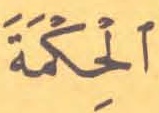 ٱلْحِكْمَةَ